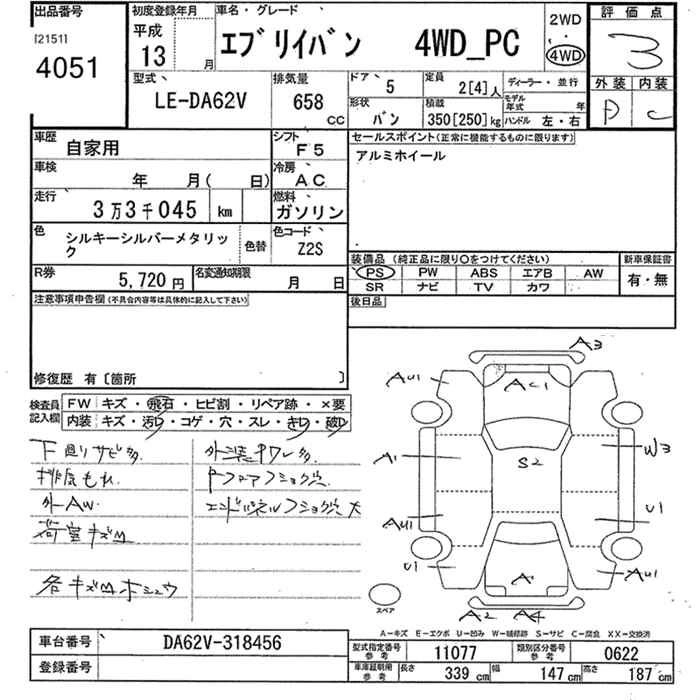 出品番号
[2151]
4051
初度登録年月
平成
13 月
車名・グレード
エブリイバン 4WD_PC
2WD
・
4WD
評価点
3
外装 内装
P C
型式
LE-DA62V
排気量
658
cc
ドア 5
形状
バン
定員
2[4]人
積載
350[250]kg
ディーラー・並行
モデル年式 年
ハンドル 左・右
車歴
自家用
シフト
F5
車検
年 月( 日)
冷房
AC
走行
3万3千045 km
燃料
ガソリン
色
シルキーシルバーメタリック
色替
色コード
Z2S
R券
5,720円
名変通知期限
月 日
セールスポイント(正常に機能するものに限ります)
アルミホイール
装備品 (純正品に限り○をつけてください)
PS PW ABS エアB AW
SR ナビ TV カワ
新車保証書
有・無
後日品
注意事項申告欄(不具合内容等は具体的に記入して下さい)
修復歴 有〔箇所 〕
検査員記入欄
FW キズ・飛石・ヒビ割・リペア跡・×要
内装 キズ・汚レ・コゲ・穴・スレ・きレ・破レ
下廻りサビ多
排気もれ
外AW
荷室キズM
各キズMホシュウ
エンドパネルフショク穴大
A3
AU1
AC1
A1
S2
W3
AU1
U1
U1
A
AU1
A2 A4
スペア
A-キズ E-エクボ U-凹み W-補修跡 S-サビ C-腐食 XX-交換済
車台番号
DA62V-318456
登録番号
型式指定番号
参考
11077
類別区分番号
参考
0622
車庫証明用
参考
長さ 339 cm 幅 147 cm 高さ 187 cm